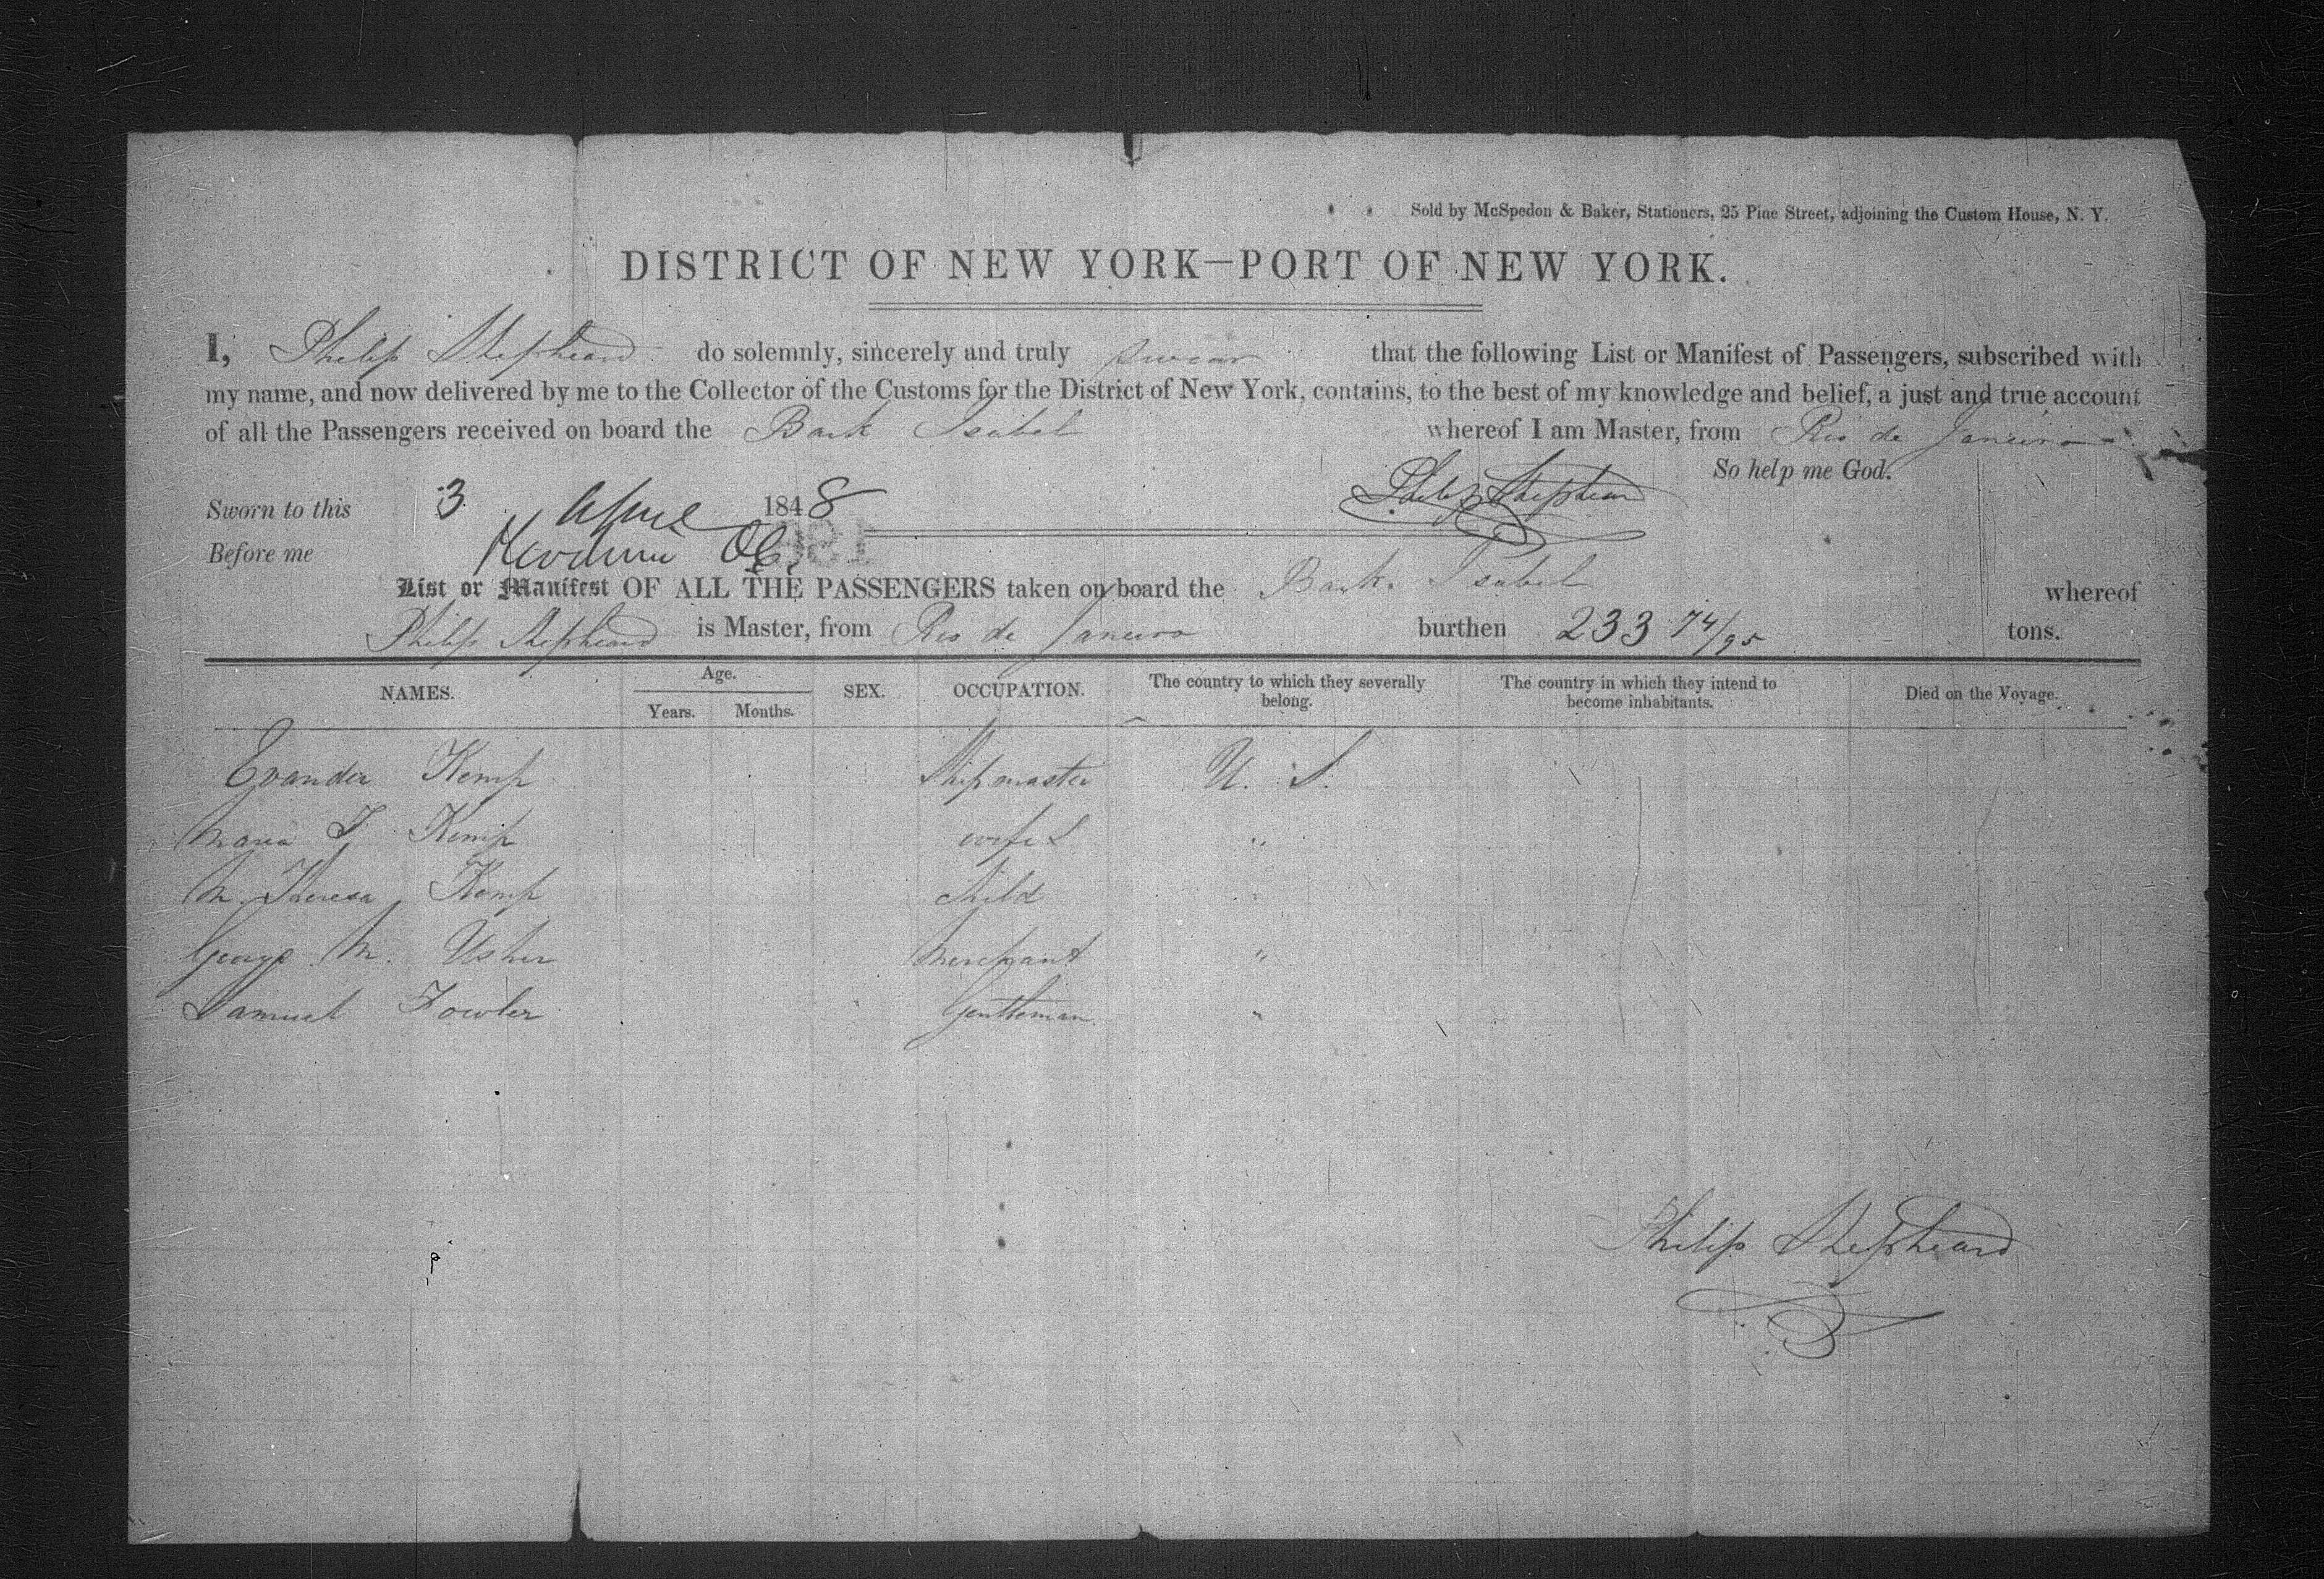 Sold by McSpedon & Baker, Stationers, 25 Pine Street, adjoining the Custom House, N. Y.
DISTRICT OF NEW YORK—PORT OF NEW YORK.
I, Philip Shepheard do solemnly, sincerely and truly swear that the following List or Manifest of Passengers, subscribed with
my name, and now delivered by me to the Collector of the Customs for the District of New York, contains, to the best of my knowledge and belief, a just and true account
of all the Passengers received on board the Bark Isabel whereof I am Master, from Rio de Janeiro
So help me God.
Philip Shepheard
Sworn to this 3 April 1848
Before me
List or Manifest OF ALL THE PASSENGERS taken on board the Bark Isabel whereof
Philip Shepheard is Master, from Rio de Janeiro burthen 233 74/95 tons.
NAMES. Age. Years. Months. SEX. OCCUPATION. The country to which they severally belong. The country in which they intend to become inhabitants. Died on the Voyage.
Evander Kemp Shipmaster U. S.
Maria T. Kemp wife "
M. Theresa Kemp Child
George M. Usher Merchant "
Samuel Fowler Gentleman "
Philip Shepheard